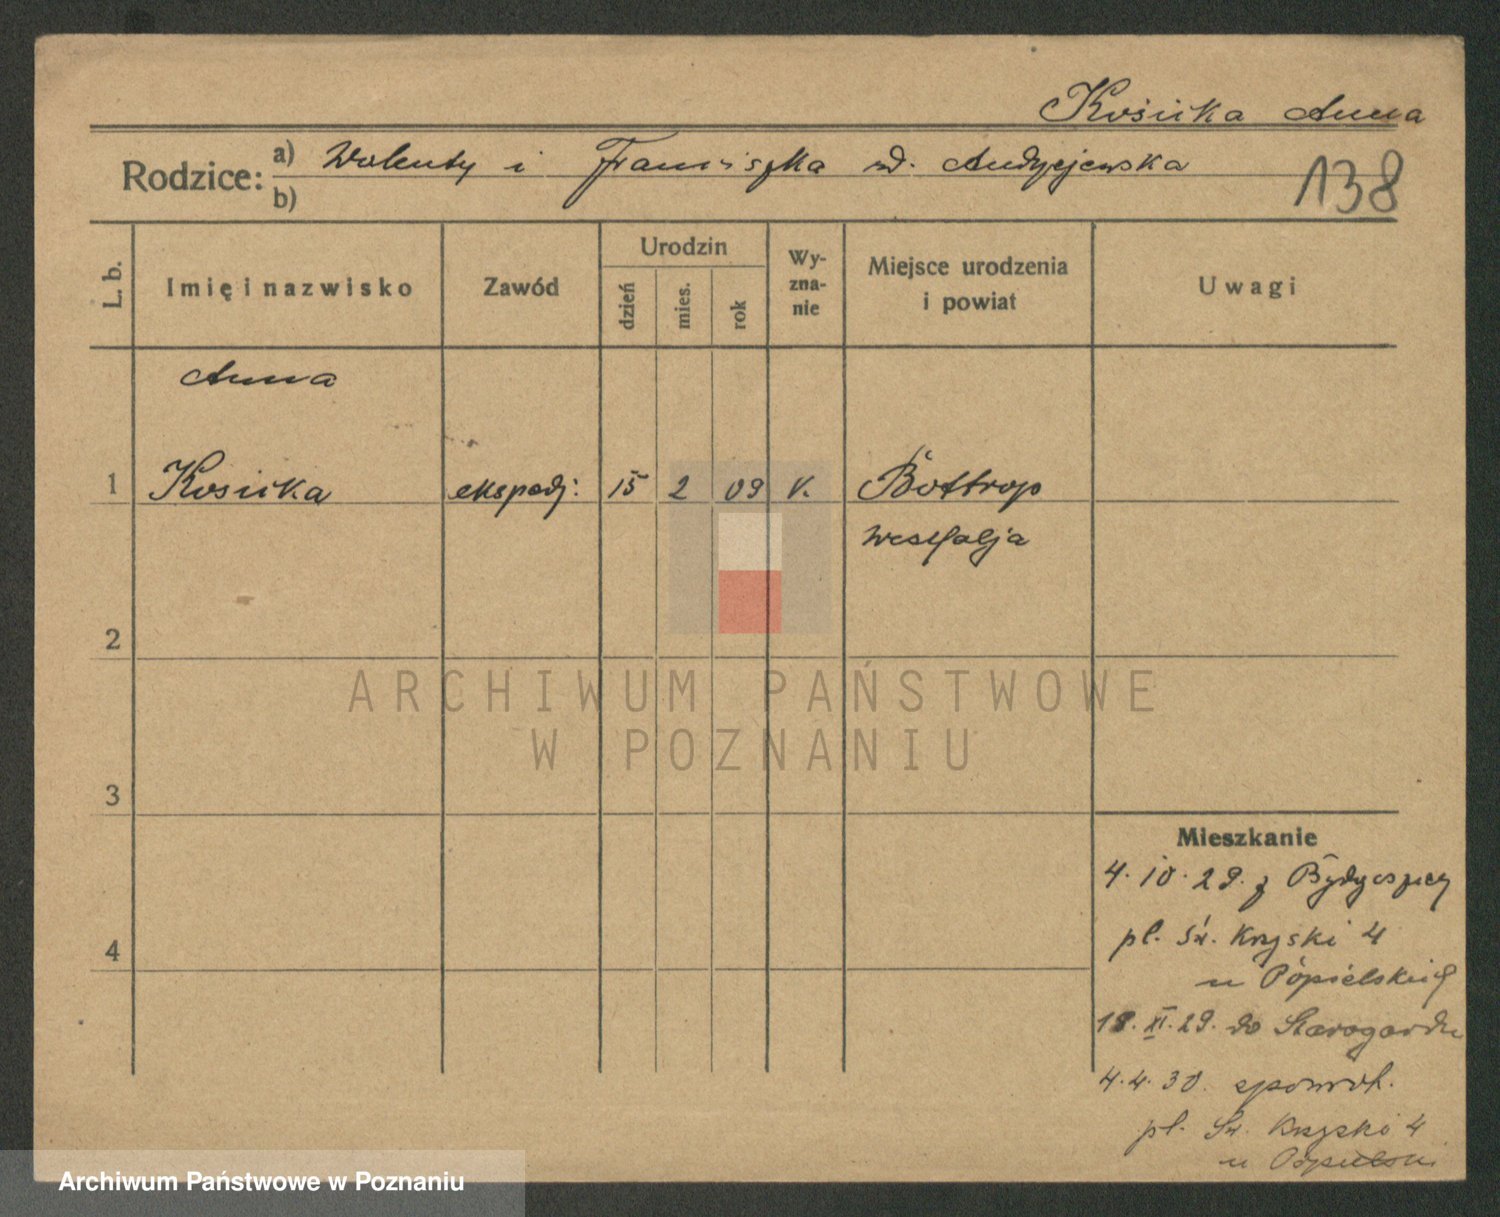 Kośiika Anna
Rodzice: a) Walenty i Franciszka zd. Andrzejewska
b)
138
L. b.
Imię i nazwisko
Zawód
Urodzin
dzień
mies.
rok
Wy-
zna-
nie
Miejsce urodzenia
i powiat
Uwagi
Anna
1 Kosiika ekspedj: 15 2 09 k. Bottrop
Westfalja
2
ARCHIWUM PAŃSTWOWE
W POZNANIU
3
Mieszkanie
4. 10. 29. z Bydgoszczy
4
pl. Św. Krzyski 4
u Popielskiej
18. XI. 29. do Starogardu
4. 4. 30. spowrot.
pl. Św. Krzyski 4
u Popielski
Archiwum Państwowe w Poznaniu